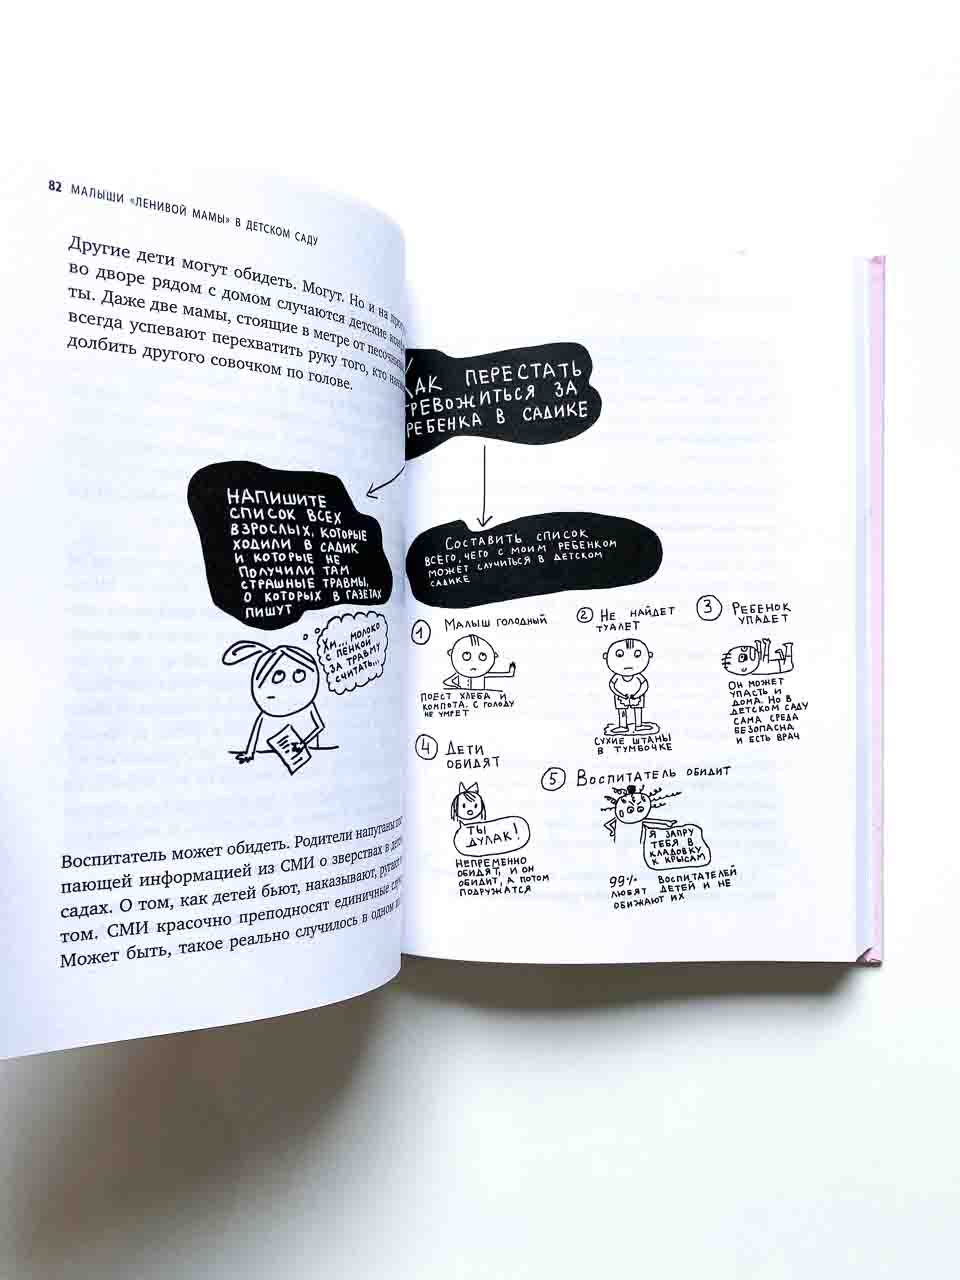 82 МАЛЫШИ «ЛЕНИВОЙ МАМЫ» В ДЕТСКОМ САДУ
Другие дети могут обидеть. Могут. Но и на
во дворе рядом с домом случаются детские
ты. Даже две мамы, стоящие в метре от
всегда успевают перехватить руку того, кто
долбить другого совочком по голове.
КАК ПЕРЕСТАТЬ
ТРЕВОЖИТЬСЯ ЗА
РЕБЕНКА В САДИКЕ
НАПИШИТЕ
СПИСОК ВСЕХ
ВЗРОСЛЫХ, КОТОРЫЕ
ХОДИЛИ В САДИК
И КОТОРЫЕ НЕ
ПОЛУЧИЛИ ТАМ
СТРАШНЫЕ ТРАВМЫ,
О КОТОРЫХ В ГАЗЕТАХ
ПИШУТ
ХМ... МОЛОКО
С ПЕНКОЙ
ЗА ТРАВМУ
СЧИТАТЬ...
Воспитатель может обидеть. Родители напуганы
пающей информацией из СМИ о зверствах в
садах. О том, как детей бьют, наказывают, ругают
том. СМИ красочно преподносят единичные
Может быть, такое реально случилось в одном
СОСТАВИТЬ СПИСОК
ВСЕГО, ЧЕГО С МОИМ РЕБЕНКОМ
МОЖЕТ СЛУЧИТЬСЯ В ДЕТСКОМ
САДИКЕ
1 МАЛЫШ ГОЛОДНЫЙ
ПОЕСТ ХЛЕБА И
КОМПОТА. С ГОЛОДУ
НЕ УМРЕТ
2 НЕ НАЙДЕТ
ТУАЛЕТ
СУХИЕ ШТАНЫ
В ТУМБОЧКЕ
3 РЕБЕНОК
УПАДЕТ
ОН МОЖЕТ
УПАСТЬ И
ДОМА. НО В
ДЕТСКОМ САДУ
САМА СРЕДА
БЕЗОПАСНА
И ЕСТЬ ВРАЧ
4 ДЕТИ
ОБИДЯТ
ТЫ
ДУЛАК!
НЕПРЕМЕННО
ОБИДЯТ, И ОН
ОБИДИТ, А ПОТОМ
ПОДРУЖАТСЯ
5 ВОСПИТАТЕЛЬ ОБИДИТ
Я ЗАПРУ
ТЕБЯ В
КЛАДОВКУ
К КРЫСАМ
99% ВОСПИТАТЕЛЕЙ
ЛЮБЯТ ДЕТЕЙ И НЕ
ОБИЖАЮТ ИХ